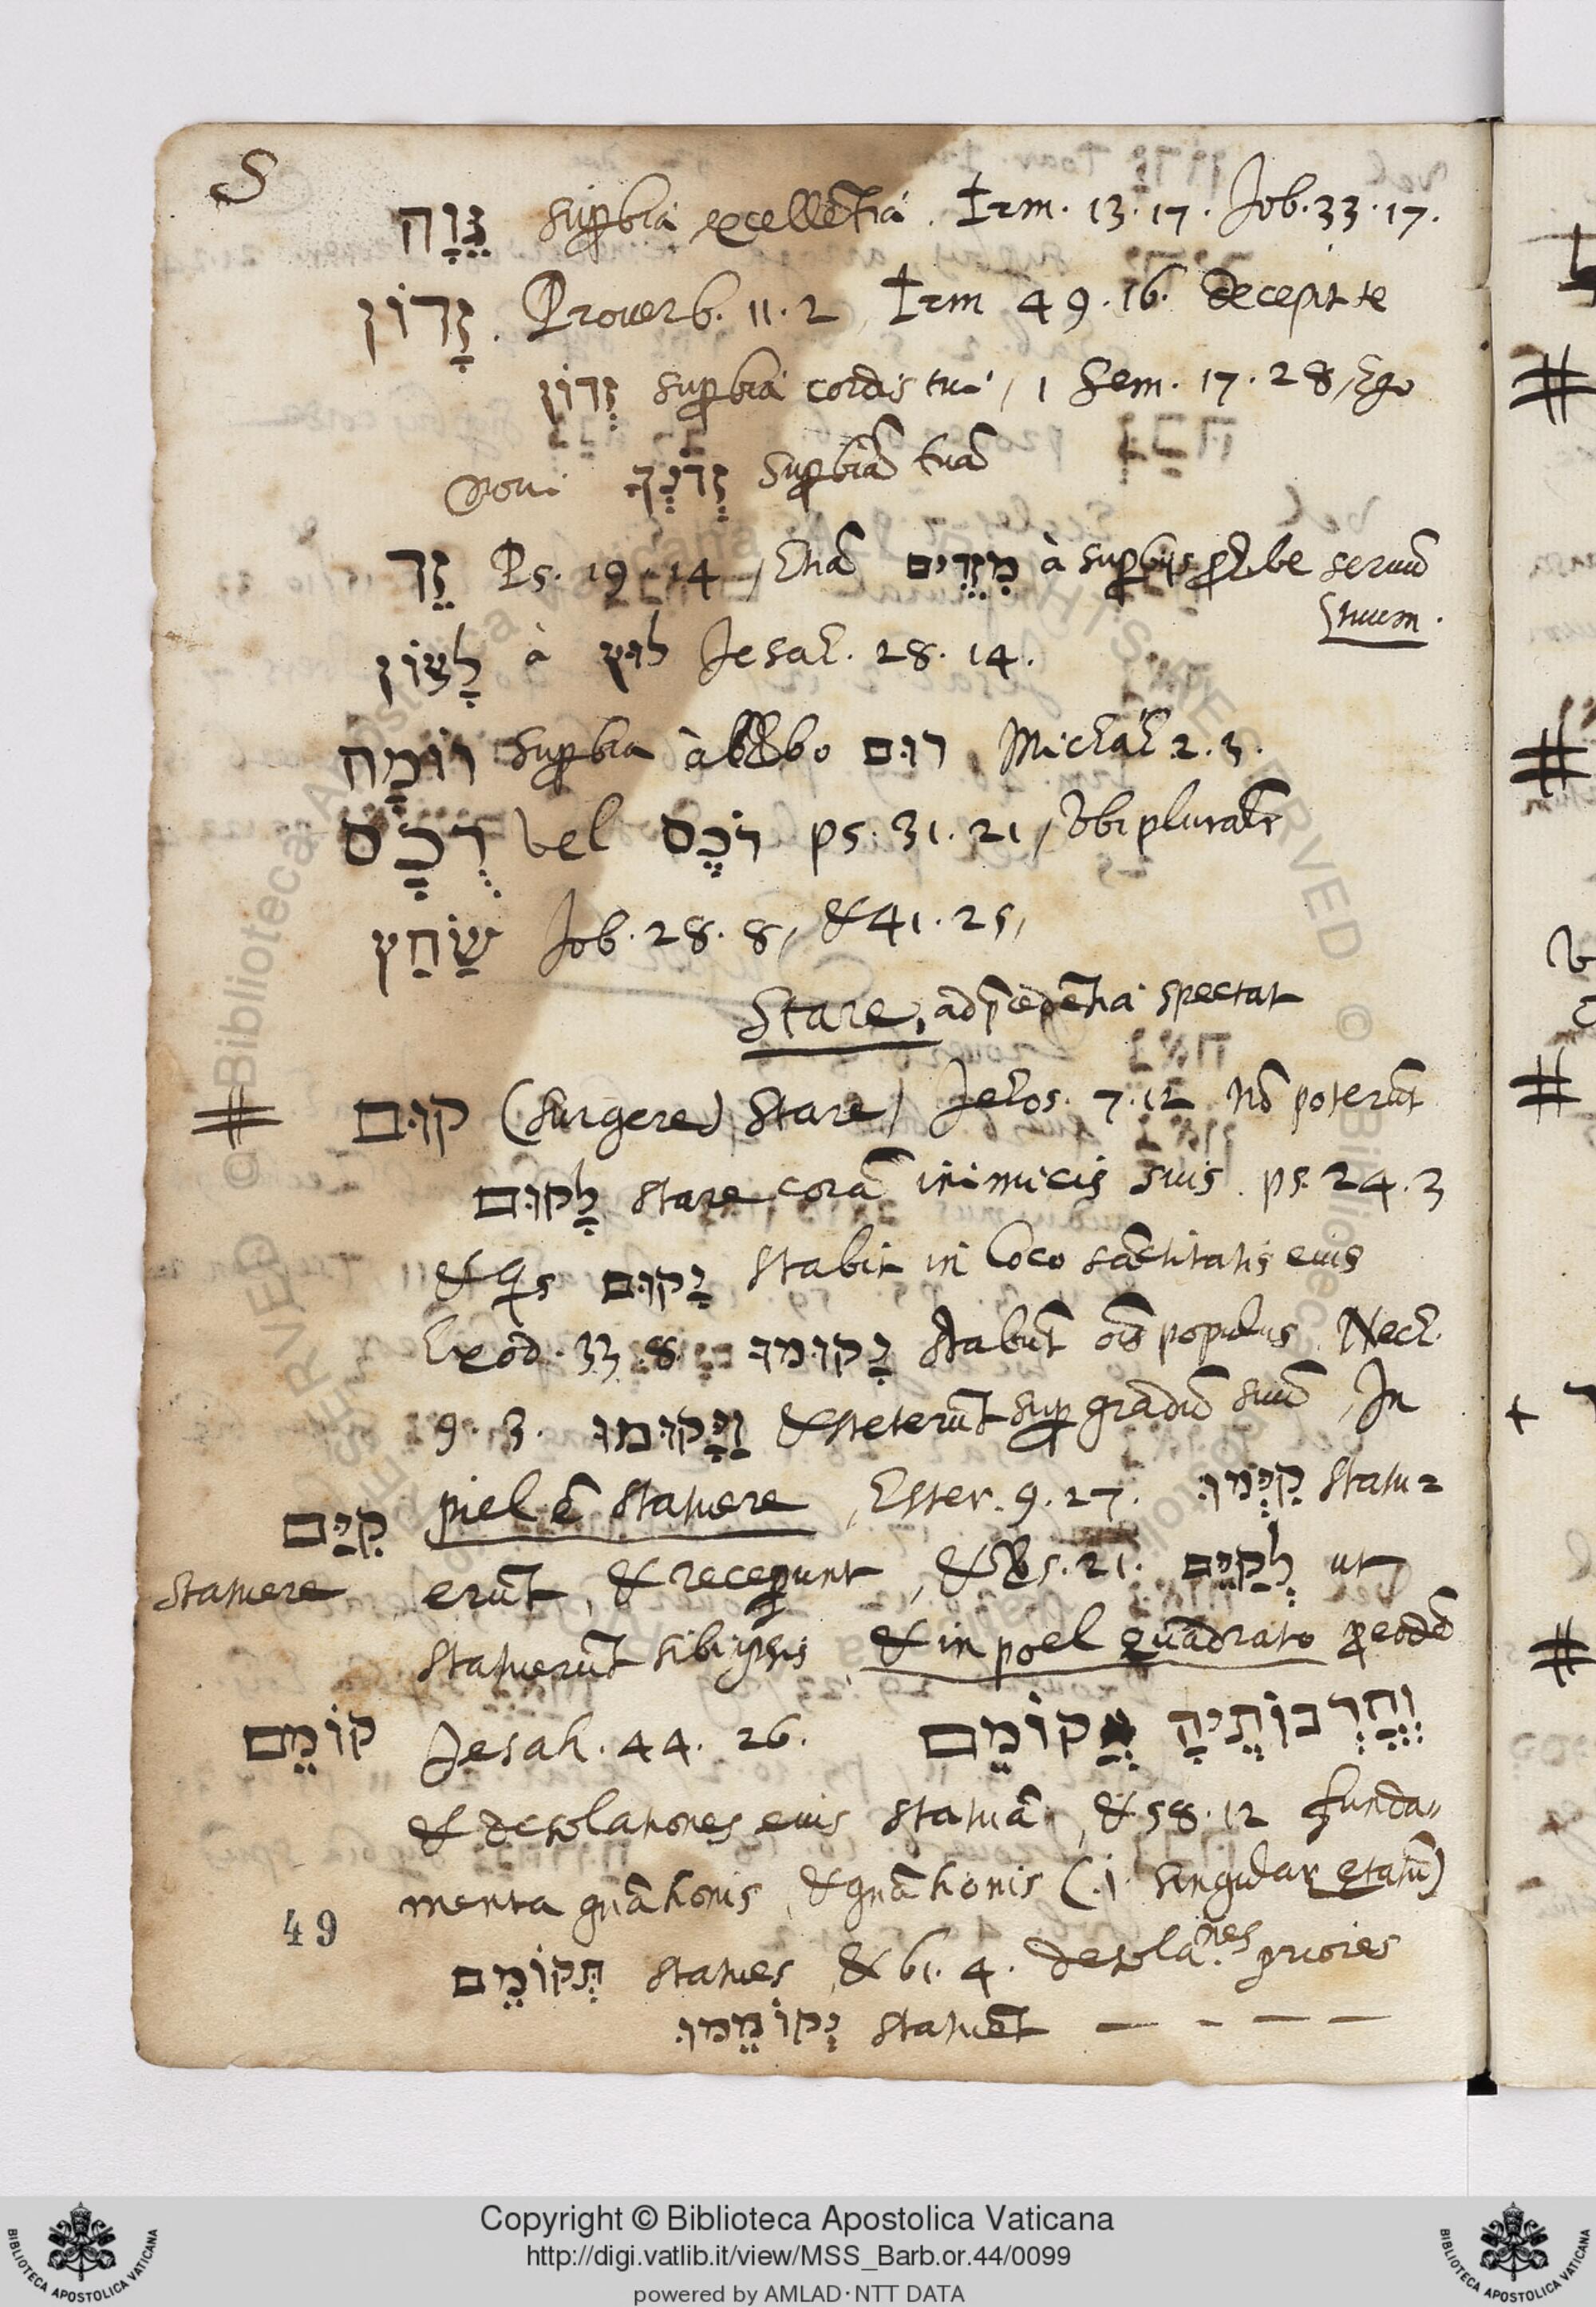 S
גֵּוָה supꝑbia excellẽtia. Irm. 13. 17. Job. 33. 17.
זָדוֹן. Prouerb. 11. 2, Irm 49. 16. decepit te
זְדוֹן supꝑbia cordis tui, 1 Sem. 17. 28, Ego
noui זְדֹנְךָ supꝑbiã tuã
זֵד Ps. 19. 14, Etiã מִזֵּדִים à supꝑbijs seruũ
tuum.
לָצוֹן à לוּץ Jesah. 28. 14.
רוֹמָה supꝑbia à רוּם, Michah 2. 3.
רֻכָּס vel רֹכֶס ps. 31. 21,
שַׁחַץ Job. 28. 8, & 41. 25,
Stare, ad p̃cedẽtia spectat
# קוּם (surgere) stare, Jehos. 7. 12 nõ poterũt
לָקוּם stare corã inimicis suis. ps. 24. 3
& qs יָקוּם stabit in loco sãctitatis euis
Exod. 33. 8. יָקוּמוּ stabũt oĩs populus. Nech.
9. 3. וַיָּקוּמוּ & steterũt supꝑ gradũ suũ, In
קִיַּם piel ẽ statuere, Ester. 9. 27. קִיְּמוּ statu=
statuere erũt, & receperunt, & Vs. 21. לְקַיֵּם ut
statuerũt sibi ipsis, & in poel quadrato ꝑ eodẽ
קוֹמֵם Jesah. 44. 26. וְחָרְבוֹתֶיהָ אֲקוֹמֵם
& desolationes euis statuã, & 58. 12 funda=
menta gñãtionis, & gñãtionis (.i. singular etatũ)
49
תְּקוֹמֵם statues, & 61. 4. desola.nes priores
יְקוֹמֵמוּ statuẽt — - — —
Copyright © Biblioteca Apostolica Vaticana
http://digi.vatlib.it/view/MSS_Barb.or.44/0099
powered by AMLAD·NTT DATA